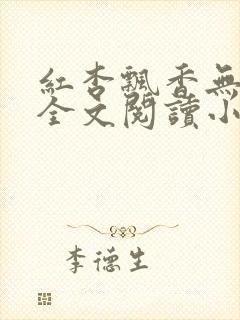 紅杏飄香無
全文閱讀小
李德生